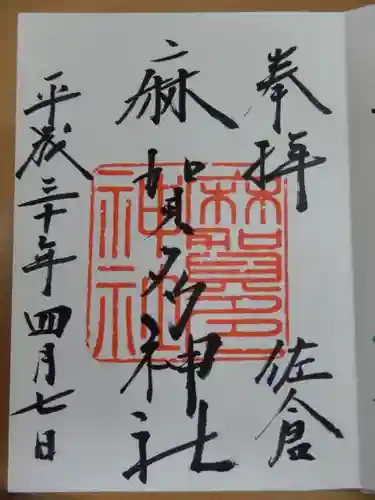 奉拝
佐倉
麻賀多神社
平成三十年四月七日
麻賀多
神社